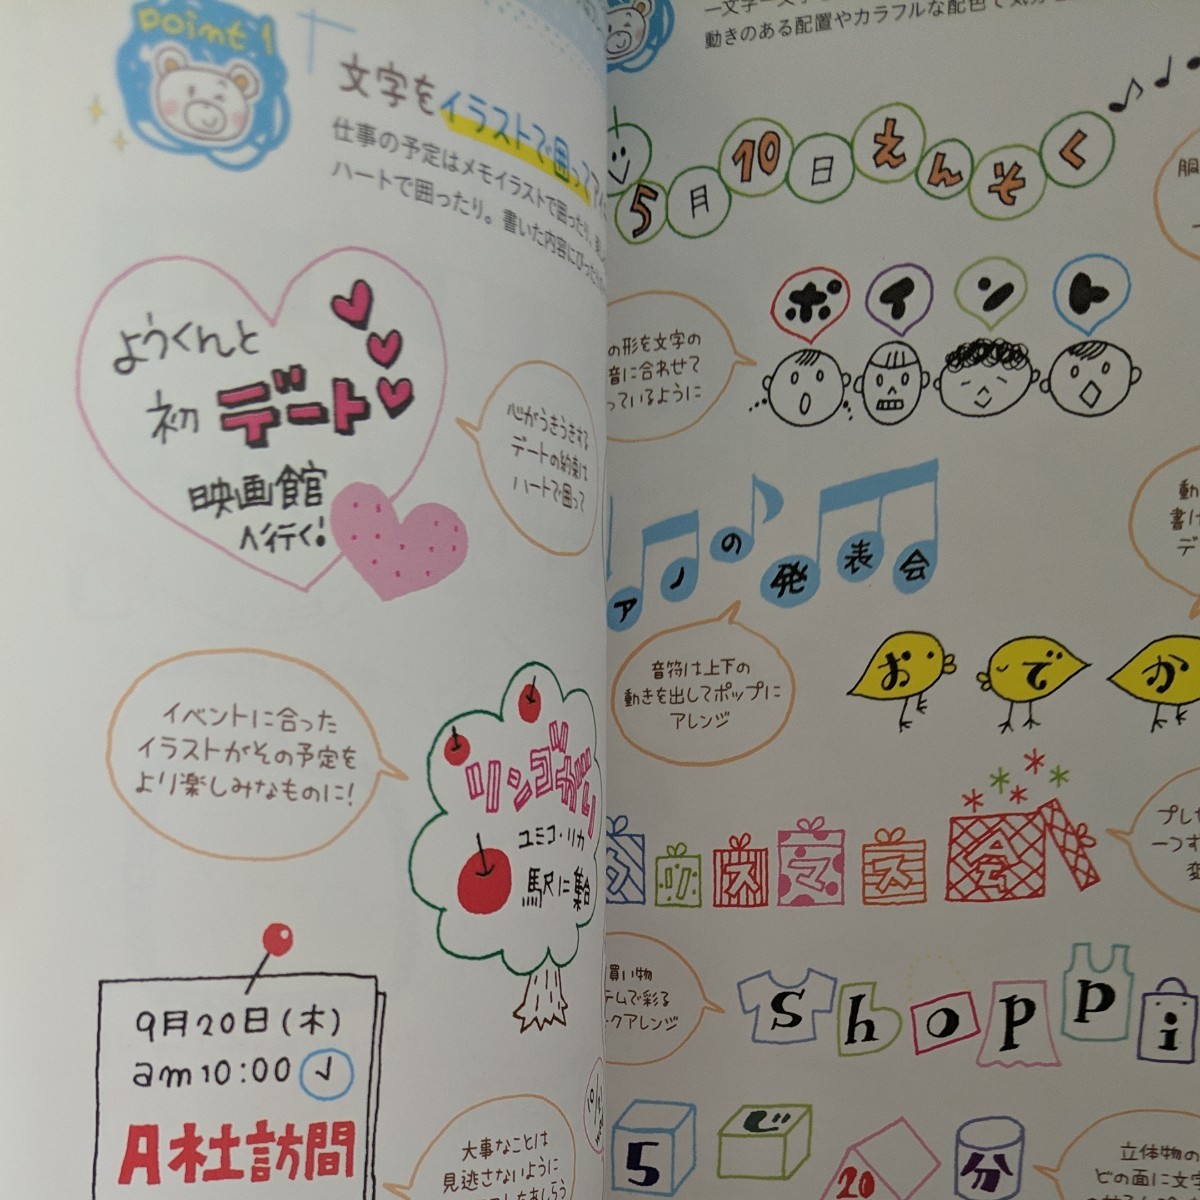 point 1
文字をイラストで囲って
仕事の予定はメモイラストで囲ったり、
ハートで囲ったり。書いた内容に
ようくんと
初デート
映画館
へ行く!
心がうきうきする
デートの約束は
ハートで囲って
イベントに合った
イラストがその予定を
より楽しみなものに!
リンゴがり
ユミコ・リカ
駅に集合
9月20日(木)
am10:00
A社訪問
大事なことは
見逃さないように
動きのある配置やカラフルな配色で
5月10日えんそく
ポイント
の形を文字の
音に合わせて
っているように
アノの発表会
音符は上下の
動きを出してポップに
アレンジ
おでか
クリスマス会
買い物
テムで彩る
ークアレンジ
shoppi
5じ20分
立体物の
どの面に文